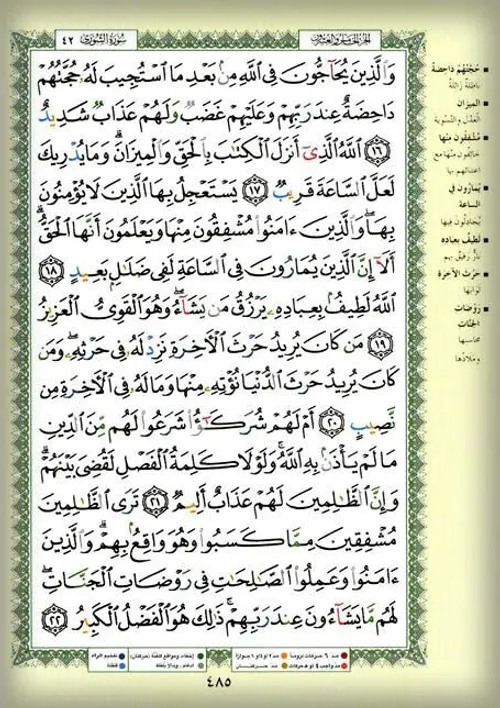 الجزء الخامس والعشرون
سورة الشورى
٤٢
وَٱلَّذِينَ يُحَآجُّونَ فِى ٱللَّهِ مِنۢ بَعْدِ مَا ٱسْتُجِيبَ لَهُۥ حُجَّتُهُمْ
دَاحِضَةٌ عِندَ رَبِّهِمْ وَعَلَيْهِمْ غَضَبٌ وَلَهُمْ عَذَابٌ شَدِيدٌ
١٦ ٱللَّهُ ٱلَّذِىٓ أَنزَلَ ٱلْكِتَٰبَ بِٱلْحَقِّ وَٱلْمِيزَانَ ۗ وَمَا يُدْرِيكَ
لَعَلَّ ٱلسَّاعَةَ قَرِيبٌ ١٧ يَسْتَعْجِلُ بِهَا ٱلَّذِينَ لَا يُؤْمِنُونَ
بِهَا ۖ وَٱلَّذِينَ ءَامَنُوا۟ مُشْفِقُونَ مِنْهَا وَيَعْلَمُونَ أَنَّهَا ٱلْحَقُّ ۗ
أَلَآ إِنَّ ٱلَّذِينَ يُمَارُونَ فِى ٱلسَّاعَةِ لَفِى ضَلَٰلٍۭ بَعِيدٍ ١٨
ٱللَّهُ لَطِيفٌۢ بِعِبَادِهِۦ يَرْزُقُ مَن يَشَآءُ ۖ وَهُوَ ٱلْقَوِىُّ ٱلْعَزِيزُ
١٩ مَن كَانَ يُرِيدُ حَرْثَ ٱلْءَاخِرَةِ نَزِدْ لَهُۥ فِى حَرْثِهِۦ ۖ وَمَن
كَانَ يُرِيدُ حَرْثَ ٱلدُّنْيَا نُؤْتِهِۦ مِنْهَا وَمَا لَهُۥ فِى ٱلْءَاخِرَةِ مِن
نَّصِيبٍ ٢٠ أَمْ لَهُمْ شُرَكَٰٓؤُا۟ شَرَعُوا۟ لَهُم مِّنَ ٱلدِّينِ
مَا لَمْ يَأْذَنۢ بِهِ ٱللَّهُ ۚ وَلَوْلَا كَلِمَةُ ٱلْفَصْلِ لَقُضِىَ بَيْنَهُمْ ۗ
وَإِنَّ ٱلظَّٰلِمِينَ لَهُمْ عَذَابٌ أَلِيمٌ ٢١ تَرَى ٱلظَّٰلِمِينَ
مُشْفِقِينَ مِمَّا كَسَبُوا۟ وَهُوَ وَاقِعٌۢ بِهِمْ ۗ وَٱلَّذِينَ
ءَامَنُوا۟ وَعَمِلُوا۟ ٱلصَّٰلِحَٰتِ فِى رَوْضَاتِ ٱلْجَنَّاتِ ۖ
لَهُم مَّا يَشَآءُونَ عِندَ رَبِّهِمْ ۚ ذَٰلِكَ هُوَ ٱلْفَضْلُ ٱلْكَبِيرُ ٢٢
حُجَّتُهُمْ دَاحِضَةٌ
باطلةٌ زائلةٌ
الميزان
العدل والتسوية
مُشْفِقون منها
خائفون منها مع
اعتنائهم بها
يُمارُون في
الساعة
يُجادلون فيها
لطيف بعباده
بارٌّ رفيقٌ بهم
حرث الآخرة
ثوابها
روضات
الجنّات
محاسنها
وملاذّها
مد ٦ حركات لزوماً
مد ٢ أو ٤ أو ٦ جوازاً
إخفاء، ومواقع الغنة (حركتان)
تفخيم الراء
مد واجب ٤ أو ٥ حركات
مد حركتان
إدغام، وما لا يلفظ
قلقلة
٤٨٥